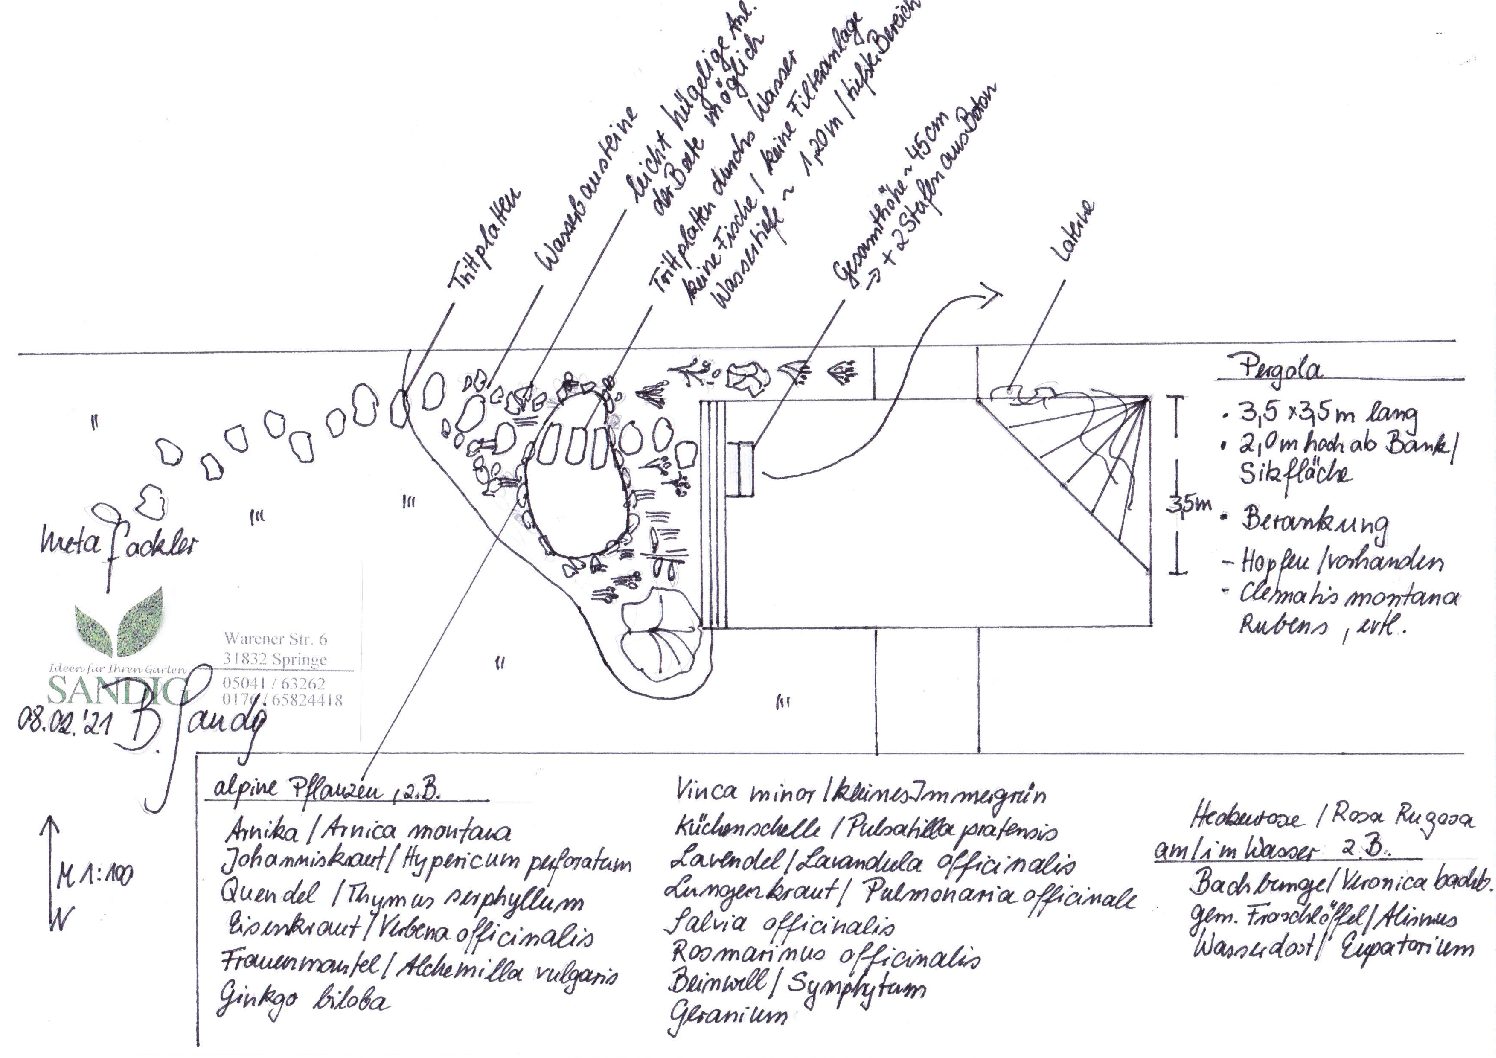 Trittplatten
Wasserbausteine
leicht hügelige Anl.
der Beete möglich
Trittplatten durchs Wasser
keine Fische / keine Filteranlage
Wassertiefe ~ 1,20m / tiefst. Bereich
Gesamthöhe ~ 45cm
→ + 2 Stufen aus Beton
Laterne
Pergola
• 3,5 x 3,5 m lang
• 2,0 m hoch ab Bank/
Sitzfläche
3,5m
• Berankung
- Hopfen / vorhanden
- Clematis montana
Rubens, evtl.
Meta Fackler
Warener Str. 6
31832 Springe
Ideen für Ihren Garten
SANDIG
05041 / 63262
0176 / 65824418
08.02.'21 B. Sandig
M 1:100
N
alpine Pflanzen, z.B.
Arnika / Arnica montana
Johanniskraut / Hypericum perforatum
Quendel / Thymus serphyllum
Eisenkraut / Verbena officinalis
Frauenmantel / Alchemilla vulgaris
Ginkgo biloba
Vinca minor / kleines Immergrün
Küchenschelle / Pulsatilla pratensis
Lavendel / Lavandula officinalis
Lungenkraut / Pulmonaria officinale
Salvia officinalis
Rosmarinus officinalis
Beinwell / Symphytum
Geranium
Heckenrose / Rosa Rugosa
am/im Wasser z.B.
Bachbunge / Veronica bachb.
gem. Froschlöffel / Alismus
Wasserdost / Eupatorium